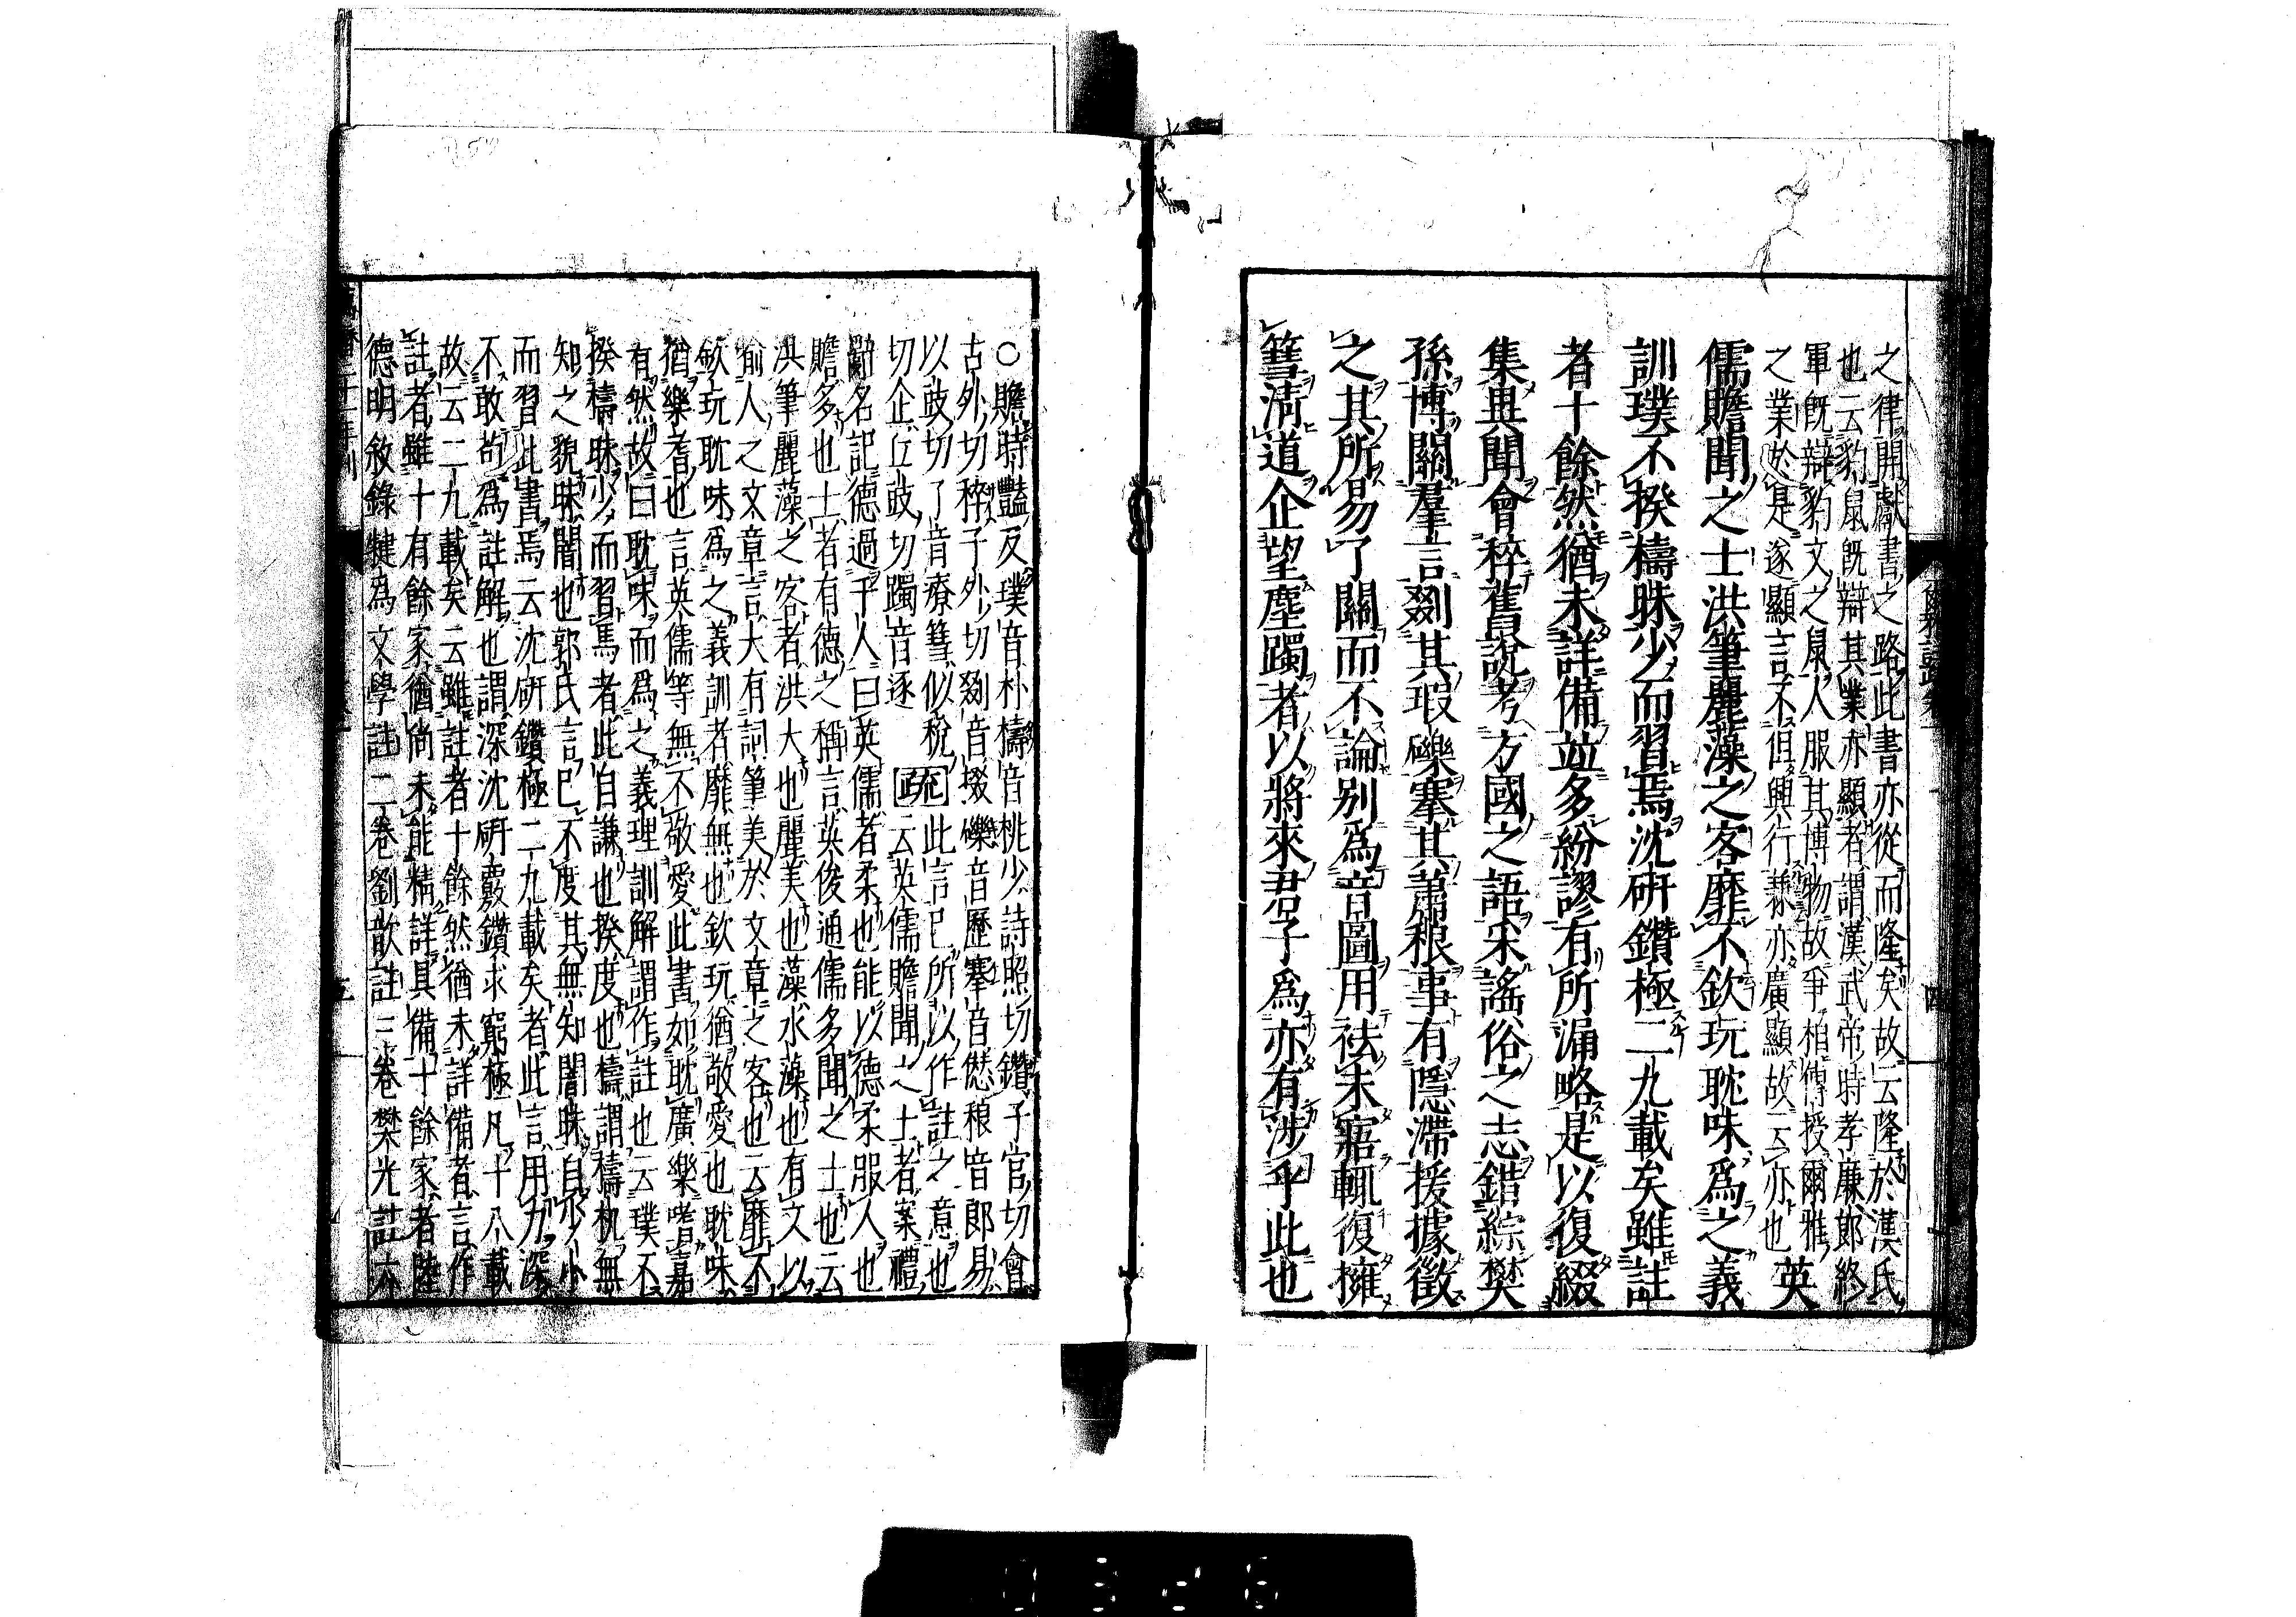 之律開獻書之路此書亦從而隆矣故云隆於漢氏
也云豹鼠既辯其業亦顯者謂漢武帝時孝廉郎終
軍既辯豹文之鼠人服其博物故爭相傳授爾雅
之業於是遂顯言不但興行兼亦廣顯故云亦也 英
儒贍聞之士洪筆麗藻之客靡不欽玩耽味爲之義
訓璞不揆檮昧少而習焉沈研鑽極二九載矣雖註
者十餘然猶未詳備竝多紛謬有所漏略是以復綴
集異聞會稡舊說考方國之語采謠俗之志錯綜樊
孫博關羣言剟其瑕礫搴其蕭稂事有隱滯援據徵
之其所易了闕而不論別爲音圖用祛未寤輒復擁
篲淸道企望塵躅者以將來君子爲亦有涉乎此也
爾雅註疏卷
四
○贍時豔反璞音朴檮音桃少詩照切鑽子官切會
古外切稡子外切剟音掇礫音歷搴音愆稂音郎易
以豉切了音療篲似稅切企丘豉切躅音逐
疏此言已所以作註之意也云英儒贍聞之士者案禮
辯名記德過千人曰英儒者柔也能以德柔服人也
贍多也士者有德之稱言英俊通儒多聞之士也云
洪筆麗藻之客者洪大也麗美也藻水藻也有文以
喻人之文章言大有詞筆美於文章之客也云靡不
欽玩耽味爲之義訓者靡無也欽玩猶敬愛也耽味
猶樂耆也言英儒等無不敬愛此書如耽廣樂嗜嘉
有然故曰耽味而爲之義理訓解謂作註也云璞不
揆檮昧少而習焉者此自謙也揆度也檮謂檮杌無
知之貌昧闇也郭氏言已不度其無知闇昧自少小
而習此書焉云沈研鑽極二九載矣者此言用力深
不敢苟爲註解也謂深沈研覈鑽求窮極凡十八載
故云二九載矣云雖註者十餘然猶未詳備者言作
註者雖十有餘家猶尙未能精詳具備十餘家者陸
德明敘錄犍爲文學註二卷劉歆註三卷樊光註六